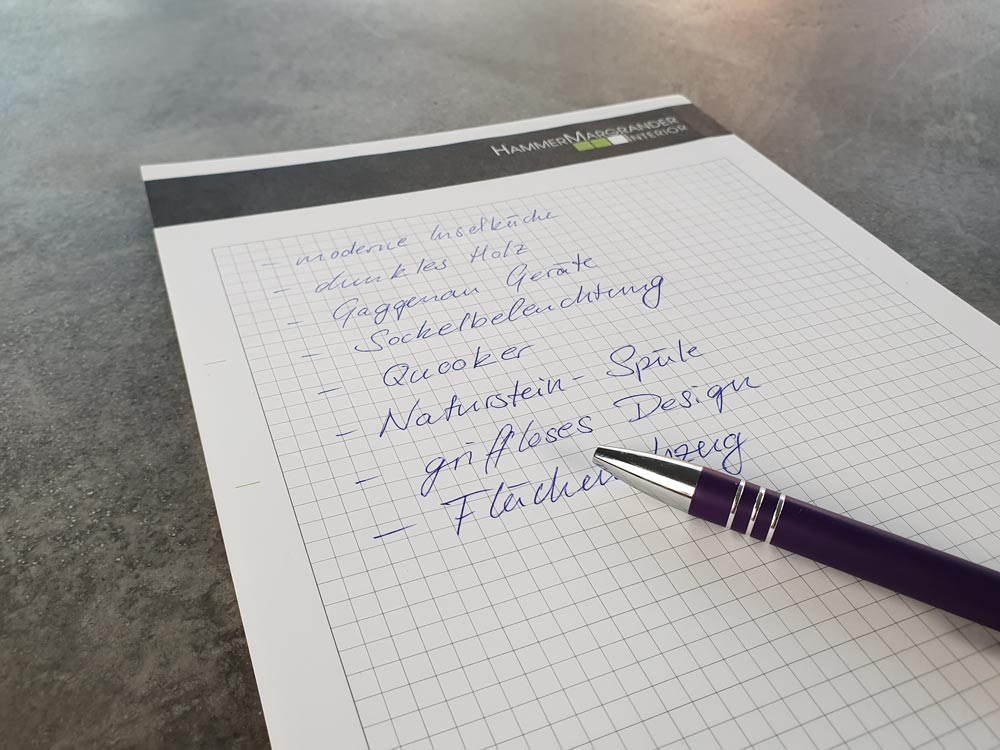 HAMMERMARGRANDER
INTERIOR
- moderne Inselküche
- dunkles Holz
- Gaggenau Geräte
- Sockelbeleuchtung
- Quooker
- Naturstein-Spüle
- griffloses Design
-